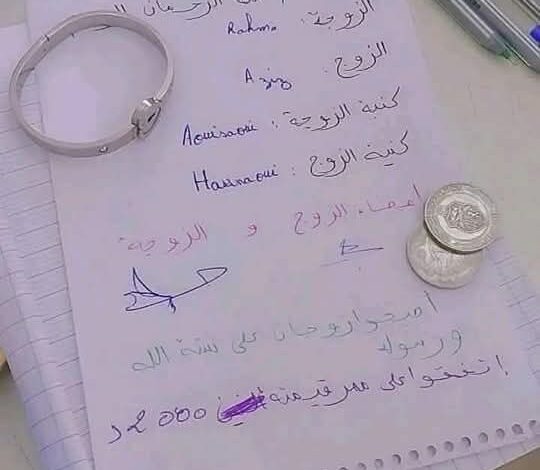 الرحمان
الزوجة: Rahma
الزوج: Aziz
كنية الزوجة: Aouisaoui
كنية الزوج: Hasnaoui
إمضاء الزوج و الزوجة
أصبحوا زوجان على سنة الله
ورسوله
إتفقوا على مهر قيمته 2000 د